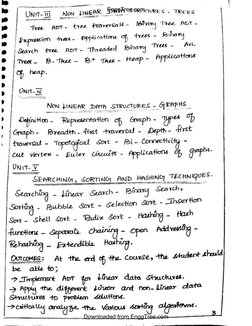 UNIT-III NON LINEAR DATA STRUCTURES - TREES
Tree ADT - tree traversals - Binary Tree ADT -
Expression trees - Applications of trees - Binary
Search tree ADT - Threaded Binary Trees - AVL
Trees - B-Tree - B+ Tree - Heap - Applications
of heap.
UNIT-IV
NON LINEAR DATA STRUCTURES - GRAPHS
Definition - Representation of Graph - Types of
Graph - Breadth-first traversal - Depth-first
traversal - Topological Sort - Bi-Connectivity -
Cut Vertex - Euler Circuits - Applications of graphs.
UNIT-V
SEARCHING, SORTING AND HASHING TECHNIQUES.
Searching - Linear Search - Binary Search,
Sorting - Bubble Sort - Selection Sort - Insertion
Sort - Shell Sort - Radix Sort - Hashing - Hash
functions - Separate Chaining - Open Addressing -
Rehashing - Extendible Hashing.
OUTCOMES: At the end of the Course, the Student should
be able to;
→ Implement ADT for Linear data Structures.
→ Apply the different Linear and non-Linear data
Structures to problem solutions.
→ Critically analyze the various Sorting algorithms.
3
Downloaded from EnggTree.com